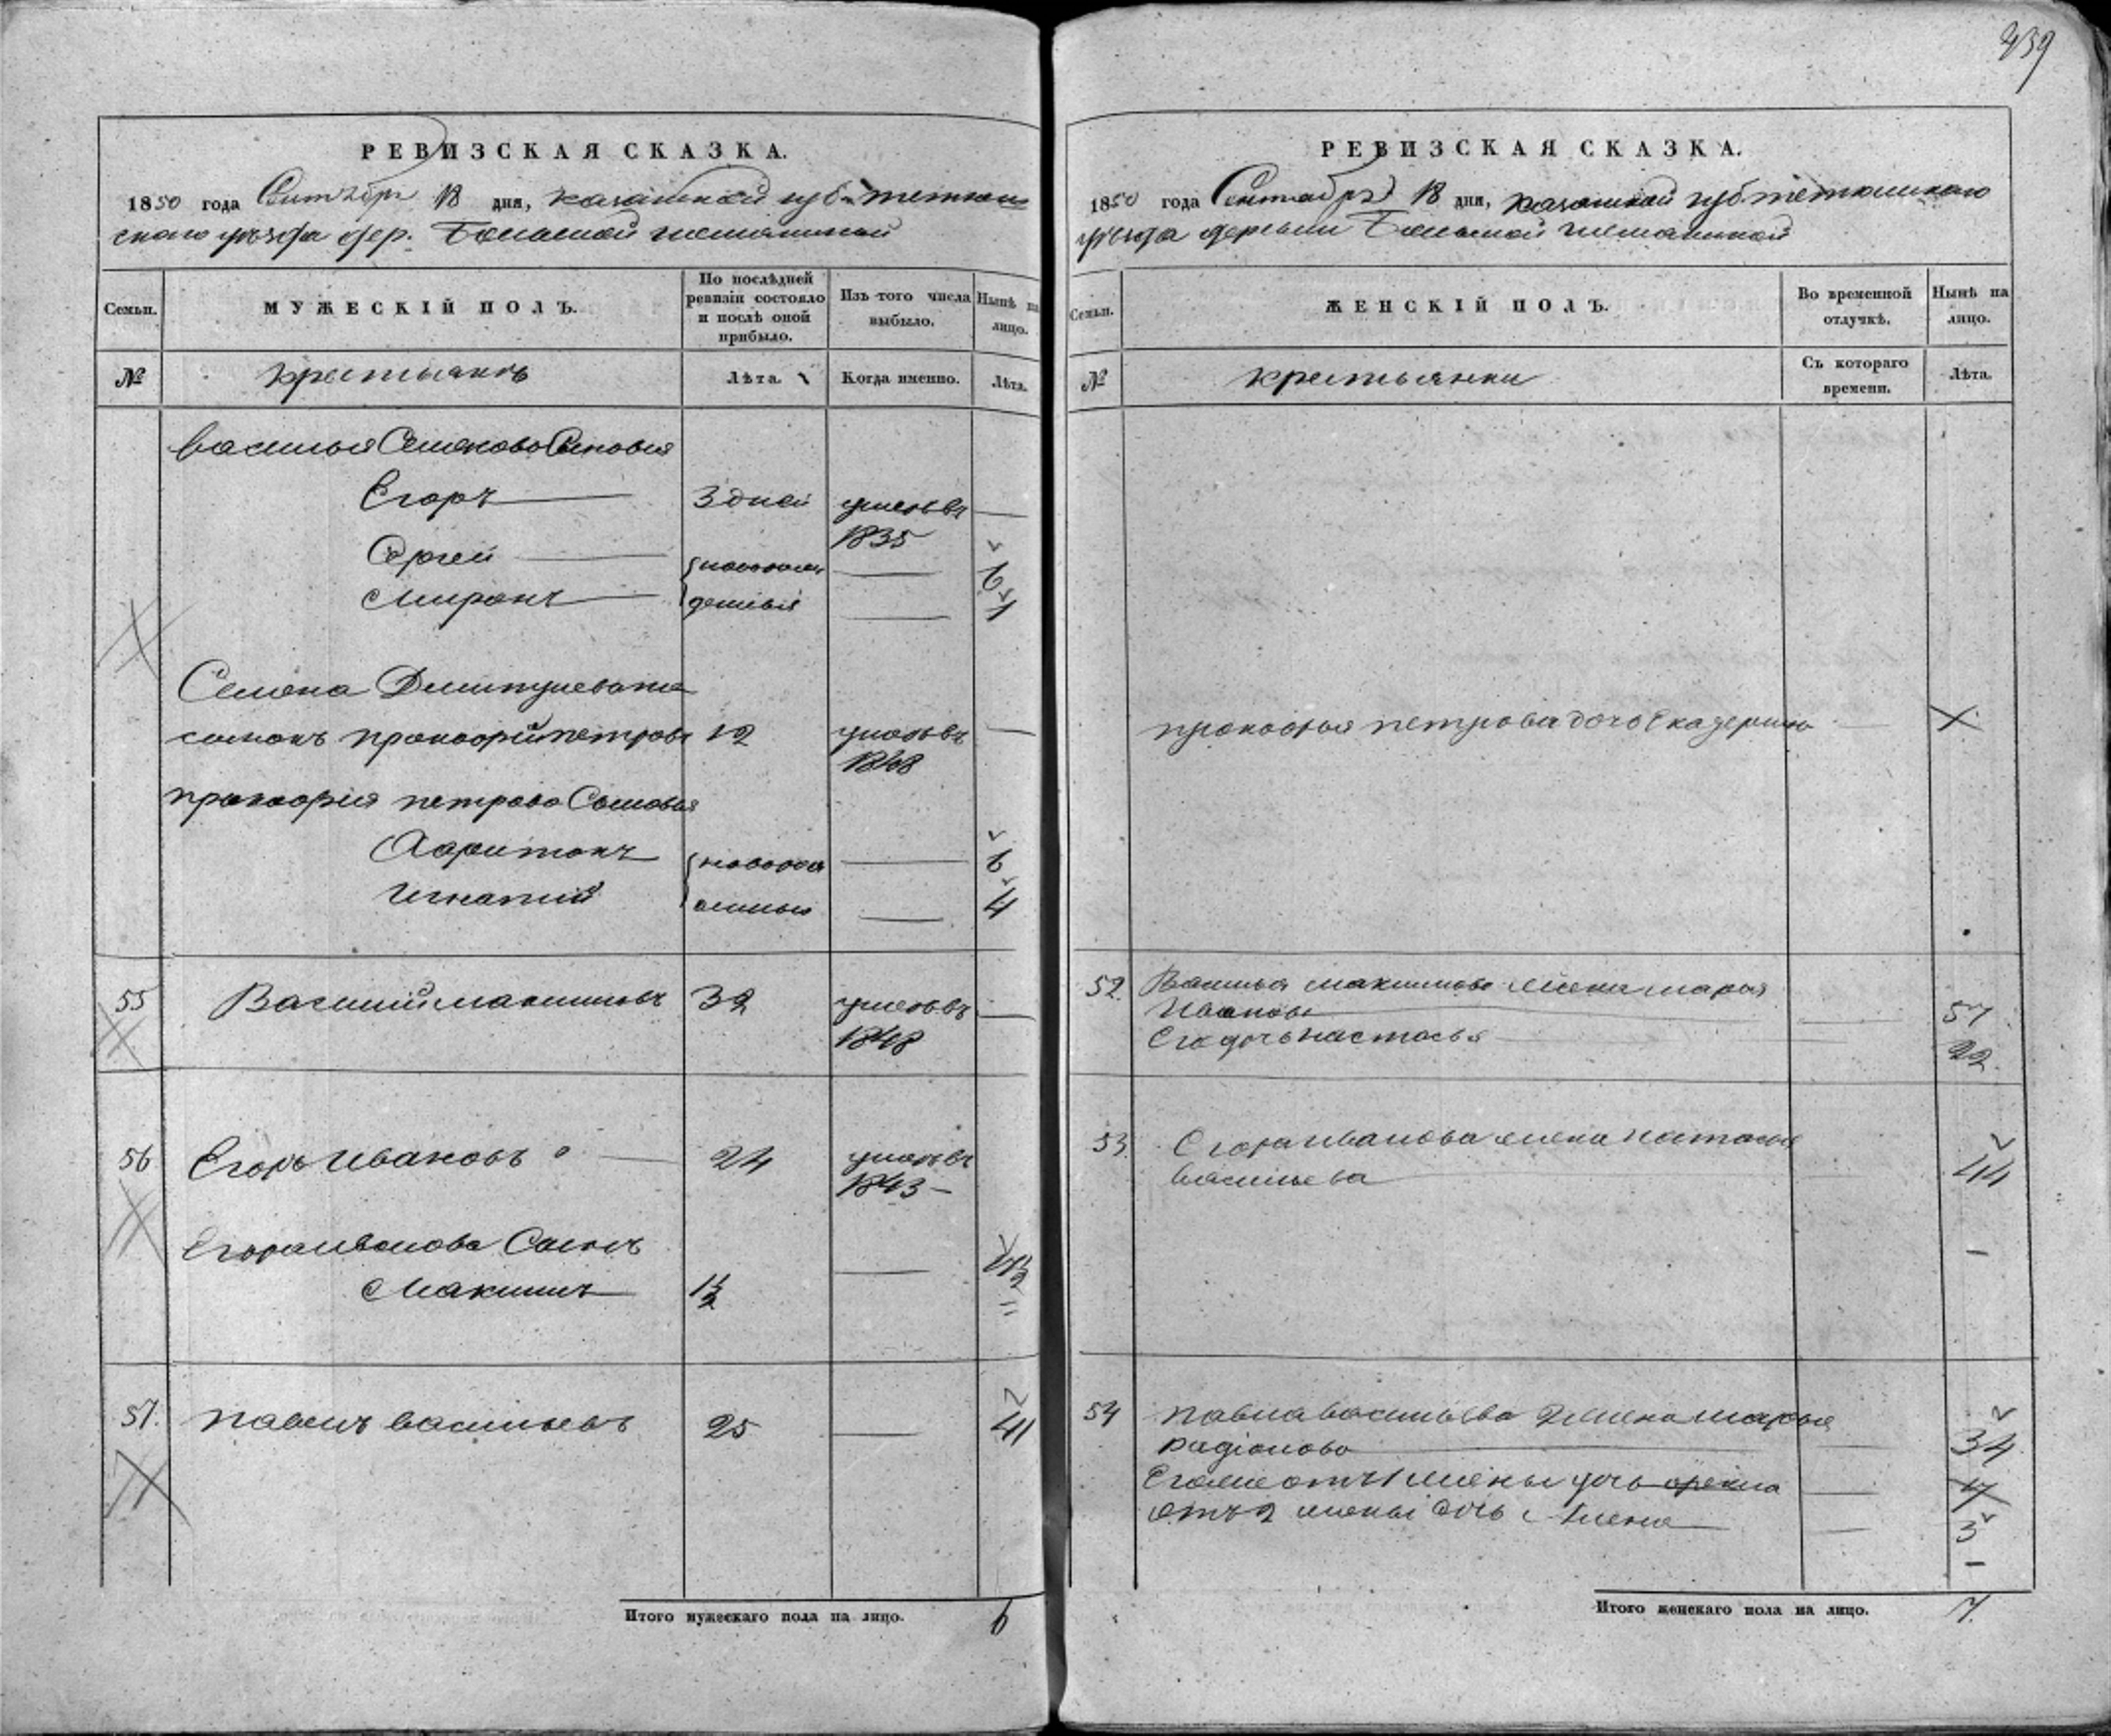 439
РЕВИЗСКАЯ СКАЗКА.
1850 года Сентября 18 дня, казанской губ. тетюш-
скаго уезда дер.
Семьи.
МУЖЕСКІЙ ПОЛЪ.
По послѣдней ревизіи состояло и послѣ оной прибыло.
Изъ того числа выбыло.
Нынѣ на лицо.
№
крестьянъ
Лѣта.
Когда именно.
Лѣта.
Василья Семенова Сыновья
Егоръ 3 дней умеръ въ
1835
Сергей новорож 6
Миронъ денныя 1
Семена Дмитриева
прокофій петровъ 12 умеръ въ
1848
прокофія петрова Сыновья
Харитонъ новорож 6
Игнатий 4
55 Василий максимовъ 32 умеръ въ
1848
56 Егоръ Ивановъ 24 умеръ въ
1843
Егора иванова Сынъ
Максимъ 1½
57. павелъ васильевъ 25 41
Итого мужескаго пола на лицо. 6
РЕВИЗСКАЯ СКАЗКА.
1850 года Сентября 18 дня, казанской губ тетюшскаго
уезда деревни
Семьи.
ЖЕНСКІЙ ПОЛЪ.
Во временной отлучкѣ.
Нынѣ на лицо.
№
крестьянки
Съ котораго времени.
Лѣта.
прокофья петрова дочь Екатерина
52. Василья максимова жена марья
Иванова 57
Его дочь настасья 22.
53. Егора иванова жена настасья
васильева 44
54 павла васильева 2 жена марья
радіонова 34
Его же отъ 1 жены дочь
отъ 2 жены дочь 3
Итого женскаго пола на лицо. 7.